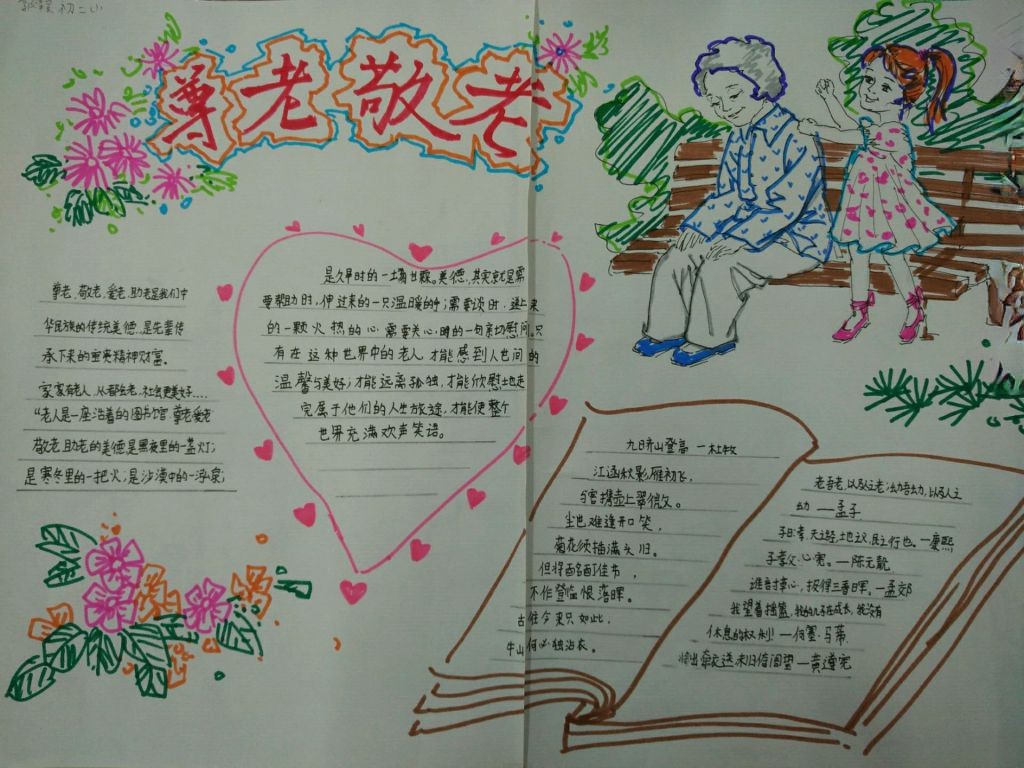 初二小
尊老敬老
尊老、敬老、爱老、助老是我们中
华民族的传统美德,是先辈传
承下来的重贵精神财富。
家家有老人,人人都会老,社会更美好....
“老人是一座活着的图书馆 尊老爱老
敬老助老的美德是黑夜里的一盏灯;
是寒冬里的一把火;是沙漠中的一泓泉;
是久旱时的一场甘霖。美德,其实就是需
要帮助时,伸过来的一只温暖的手;需要谈时,递上来
的一颗火热的心 需要关心时的一句亲切慰问,只
有在这种世界中的老人,才能感到人世间的
温馨与美好;才能远离孤独,才能欣慰地走
完属于他们的人生旅途,才能使整个
世界充满欢声笑语。
九日齐山登高 一杜牧
江涵秋影雁初飞,
与客携壶上翠微。
尘世难逢开口笑,
菊花须插满头归。
但将酩酊佳节,
不作登临恨落晖。
古往今来只如此,
牛山何必独沾衣。
老吾老,以及人之老;幼吾幼,以及人之
幼 —孟子
子曰:孝,天之经,地之义,民之行也。—康熙
子孝父心宽。—陈元靓
谁言寸草心,报得三春晖。—孟郊
我望着摇篮,我的儿子在成长,我没有
休息的权利!—何塞·马蒂
将出牵衣送未归倚闾望—黄遵宪